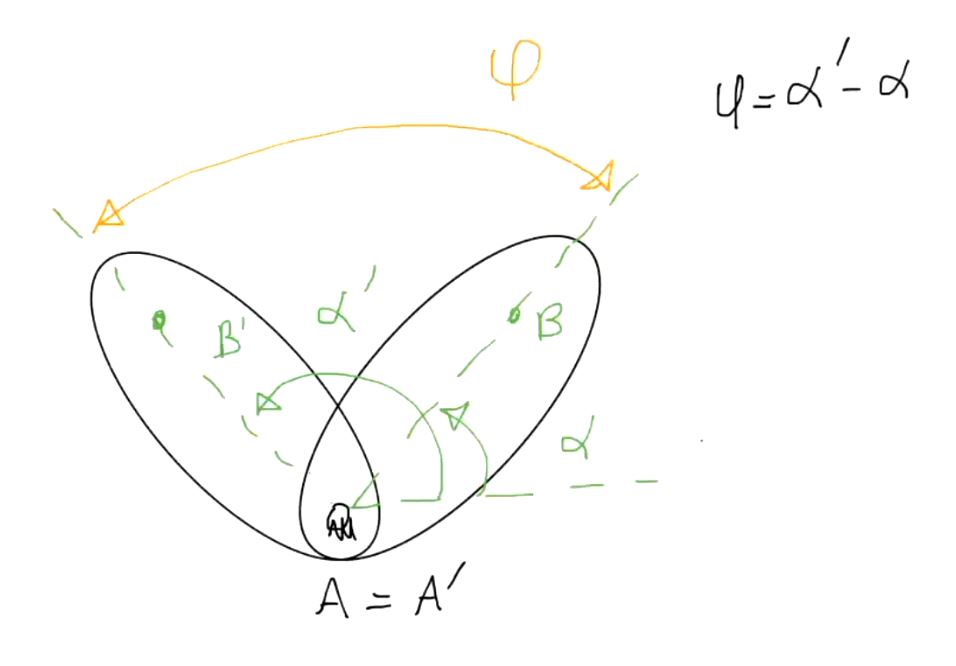 φ
φ = α' - α
α'
B'
B
α
A = A'